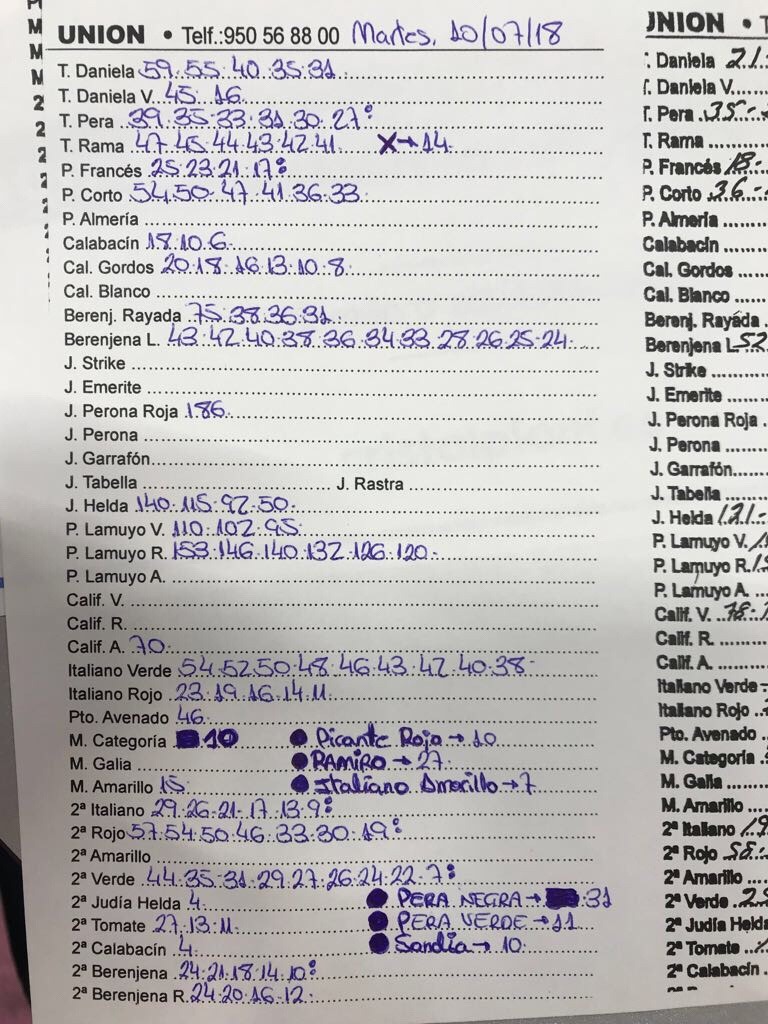 UNION • Telf.:950 56 88 00 Martes, 10/07/18
T. Daniela 59.55.40.35.31.
T. Daniela V. 45.16.
T. Pera 39.35.33.31.30.27:
T. Rama 47.45.44.43.42.41. X→14.
P. Francés 25.23.21.17:
P. Corto 54.50.47.41.36.33.
P. Almería
Calabacín 18.10.6.
Cal. Gordos 20.18.16.13.10.8.
Cal. Blanco
Berenj. Rayada 75.38.36.31.
Berenjena L. 43.42.40.38.36.34.33.28.26.25.24.
J. Strike
J. Emerite
J. Perona Roja 186.
J. Perona
J. Garrafón
J. Tabella J. Rastra
J. Helda 140.115.92.50.
P. Lamuyo V. 110.102.95.
P. Lamuyo R. 153.146.140.132.126.120.
P. Lamuyo A.
Calif. V.
Calif. R.
Calif. A. 70.
Italiano Verde 54.52.50.48.46.43.42.40.38.
Italiano Rojo 23.19.16.14.11.
Pto. Avenado 46.
M. Categoría 10 ● Picante Rojo→10
M. Galia ● RAMIRO→27.
M. Amarillo 15. ● Italiano Amarillo→7
2ª Italiano 29.26.21.17.13.9:
2ª Rojo 57.54.50.46.33.30.19:
2ª Amarillo
2ª Verde 44.35.31.29.27.26.24.22.7:
2ª Judía Helda 4. ● PERA NEGRA→31
2ª Tomate 27.13.11. ● PERA VERDE→11
2ª Calabacín 4. ● Sandía→10.
2ª Berenjena 24.21.18.14.10:
2ª Berenjena R. 24.20.16.12.
UNION •
T. Daniela 21.
T. Daniela V.
T. Pera 35.
T. Rama
P. Francés 18.
P. Corto 36.
P. Almería
Calabacín
Cal. Gordos
Cal. Blanco
Berenj. Rayada
Berenjena L. 52
J. Strike
J. Emerite
J. Perona Roja
J. Perona
J. Garrafón
J. Tabella
J. Helda 121.
P. Lamuyo V.
P. Lamuyo R.
P. Lamuyo A.
Calif. V. 78.
Calif. R.
Calif. A.
Italiano Verde
Italiano Rojo
Pto. Avenado
M. Categoría
M. Galia
M. Amarillo
2ª Italiano
2ª Rojo
2ª Amarillo
2ª Verde
2ª Judía Helda
2ª Tomate
2ª Calabacín